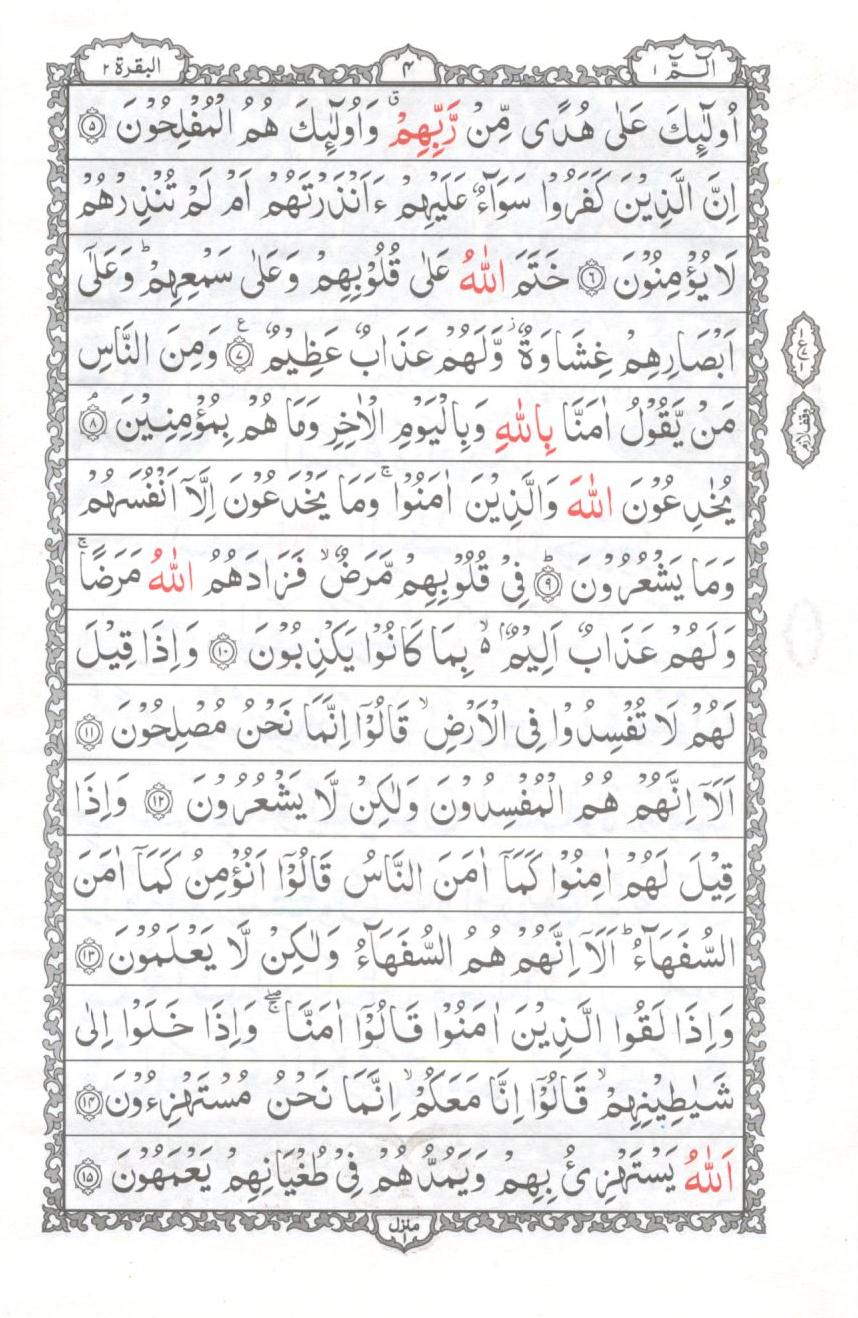 الٓمّٓ ١
۴
البقرة ٢
اُولٰٓئِكَ عَلٰى هُدًى مِّنْ رَّبِّهِمْ ۗ وَاُولٰٓئِكَ هُمُ الْمُفْلِحُوْنَ ۝۵
اِنَّ الَّذِيْنَ كَفَرُوْا سَوَآءٌ عَلَيْهِمْ ءَاَنْذَرْتَهُمْ اَمْ لَمْ تُنْذِرْهُمْ
لَا يُؤْمِنُوْنَ ۝۶ خَتَمَ اللّٰهُ عَلٰى قُلُوْبِهِمْ وَعَلٰى سَمْعِهِمْ ؕ وَعَلٰٓى
اَبْصَارِهِمْ غِشَاوَةٌ ز وَّلَهُمْ عَذَابٌ عَظِيْمٌ ۝۷ ع وَمِنَ النَّاسِ
مَنْ يَّقُوْلُ اٰمَنَّا بِاللّٰهِ وَبِالْيَوْمِ الْاٰخِرِ وَمَا هُمْ بِمُؤْمِنِيْنَ ۘ ۝۸
يُخٰدِعُوْنَ اللّٰهَ وَالَّذِيْنَ اٰمَنُوْا ۚ وَمَا يَخْدَعُوْنَ اِلَّآ اَنْفُسَهُمْ
وَمَا يَشْعُرُوْنَ ؕ ۝۹ فِيْ قُلُوْبِهِمْ مَّرَضٌ ۙ فَزَادَهُمُ اللّٰهُ مَرَضًا ۚ
وَلَهُمْ عَذَابٌ اَلِيْمٌۢ ۙ۬ بِمَا كَانُوْا يَكْذِبُوْنَ ۝۱۰ وَاِذَا قِيْلَ
لَهُمْ لَا تُفْسِدُوْا فِى الْاَرْضِ ۙ قَالُوْٓا اِنَّمَا نَحْنُ مُصْلِحُوْنَ ۝۱۱
اَلَآ اِنَّهُمْ هُمُ الْمُفْسِدُوْنَ وَلٰكِنْ لَّا يَشْعُرُوْنَ ۝۱۲ وَاِذَا
قِيْلَ لَهُمْ اٰمِنُوْا كَمَآ اٰمَنَ النَّاسُ قَالُوْٓا اَنُؤْمِنُ كَمَآ اٰمَنَ
السُّفَهَآءُ ؕ اَلَآ اِنَّهُمْ هُمُ السُّفَهَآءُ وَلٰكِنْ لَّا يَعْلَمُوْنَ ۝۱۳
وَاِذَا لَقُوا الَّذِيْنَ اٰمَنُوْا قَالُوْٓا اٰمَنَّا ۚۖ وَاِذَا خَلَوْا اِلٰى
شَيٰطِيْنِهِمْ ۙ قَالُوْٓا اِنَّا مَعَكُمْ ۙ اِنَّمَا نَحْنُ مُسْتَهْزِءُوْنَ ۝۱۴
اَللّٰهُ يَسْتَهْزِئُ بِهِمْ وَيَمُدُّهُمْ فِيْ طُغْيَانِهِمْ يَعْمَهُوْنَ ۝۱۵
ع
منزل ١